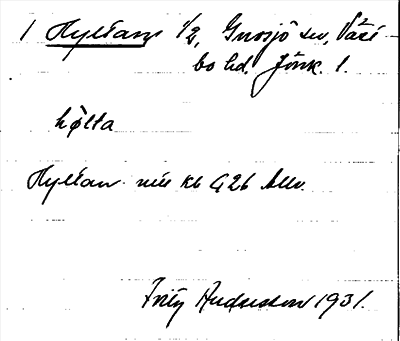 1 Hyltan 1/2, Gnosjö sn, Väst-
bo hd. Jönk. l.
hǫ̀lta
Hyltan mu kb G2b Allv.
Fritz Andersson 1931.